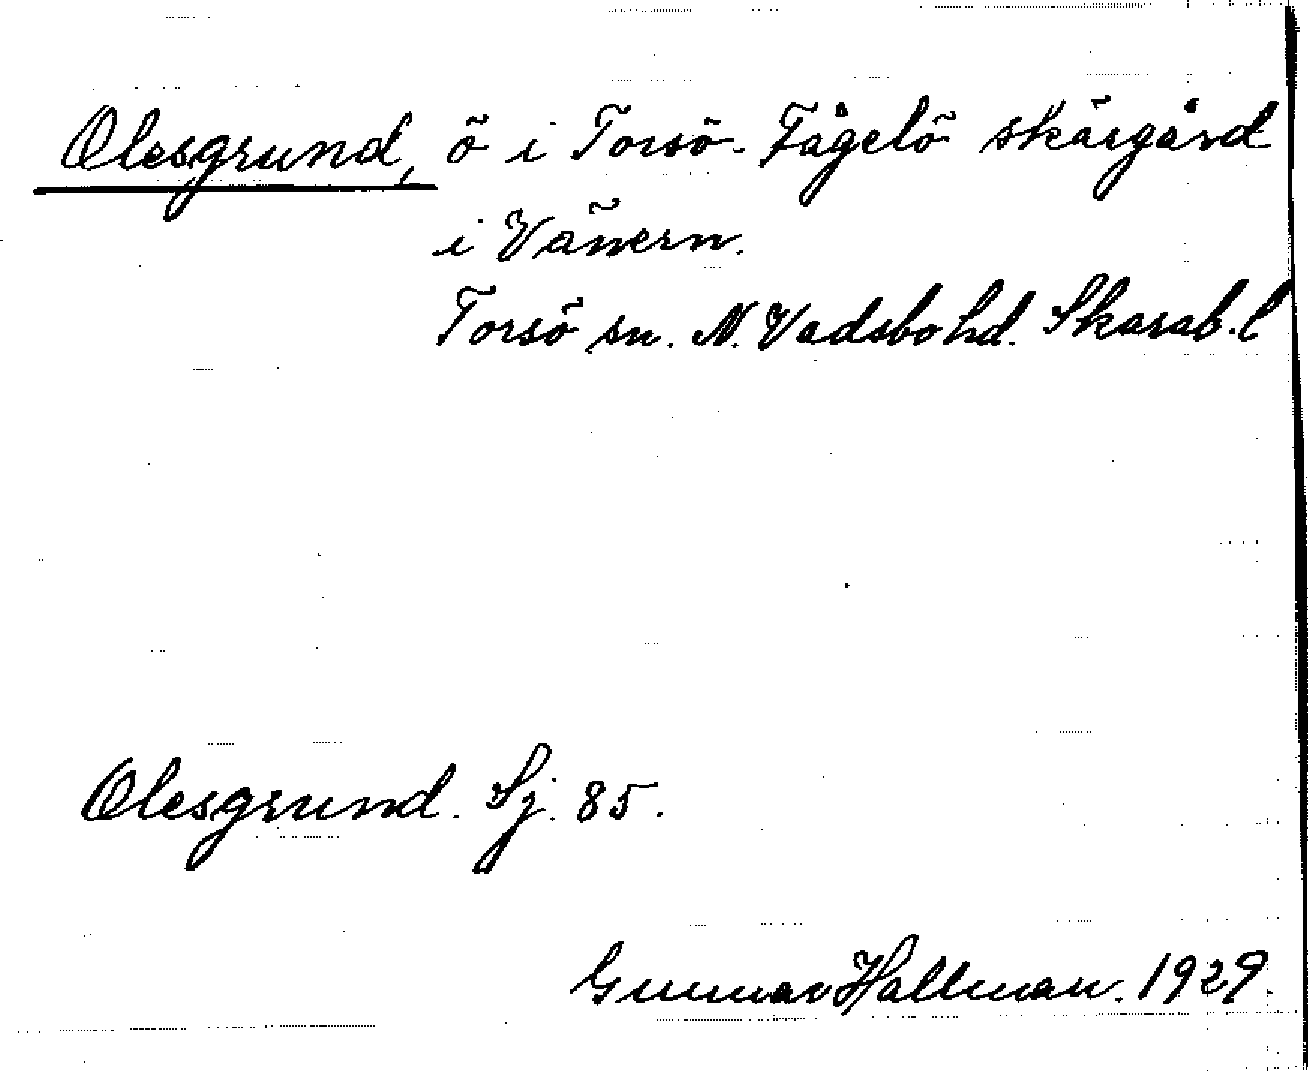 Olesgrund, ö i Torsö-Fågelö skärgård
i Vänern.
Torsö sn. N. Vadsbo hd. Skarab. l
Olesgrund. Sj. 85.
Gunnar Hallman. 1929.